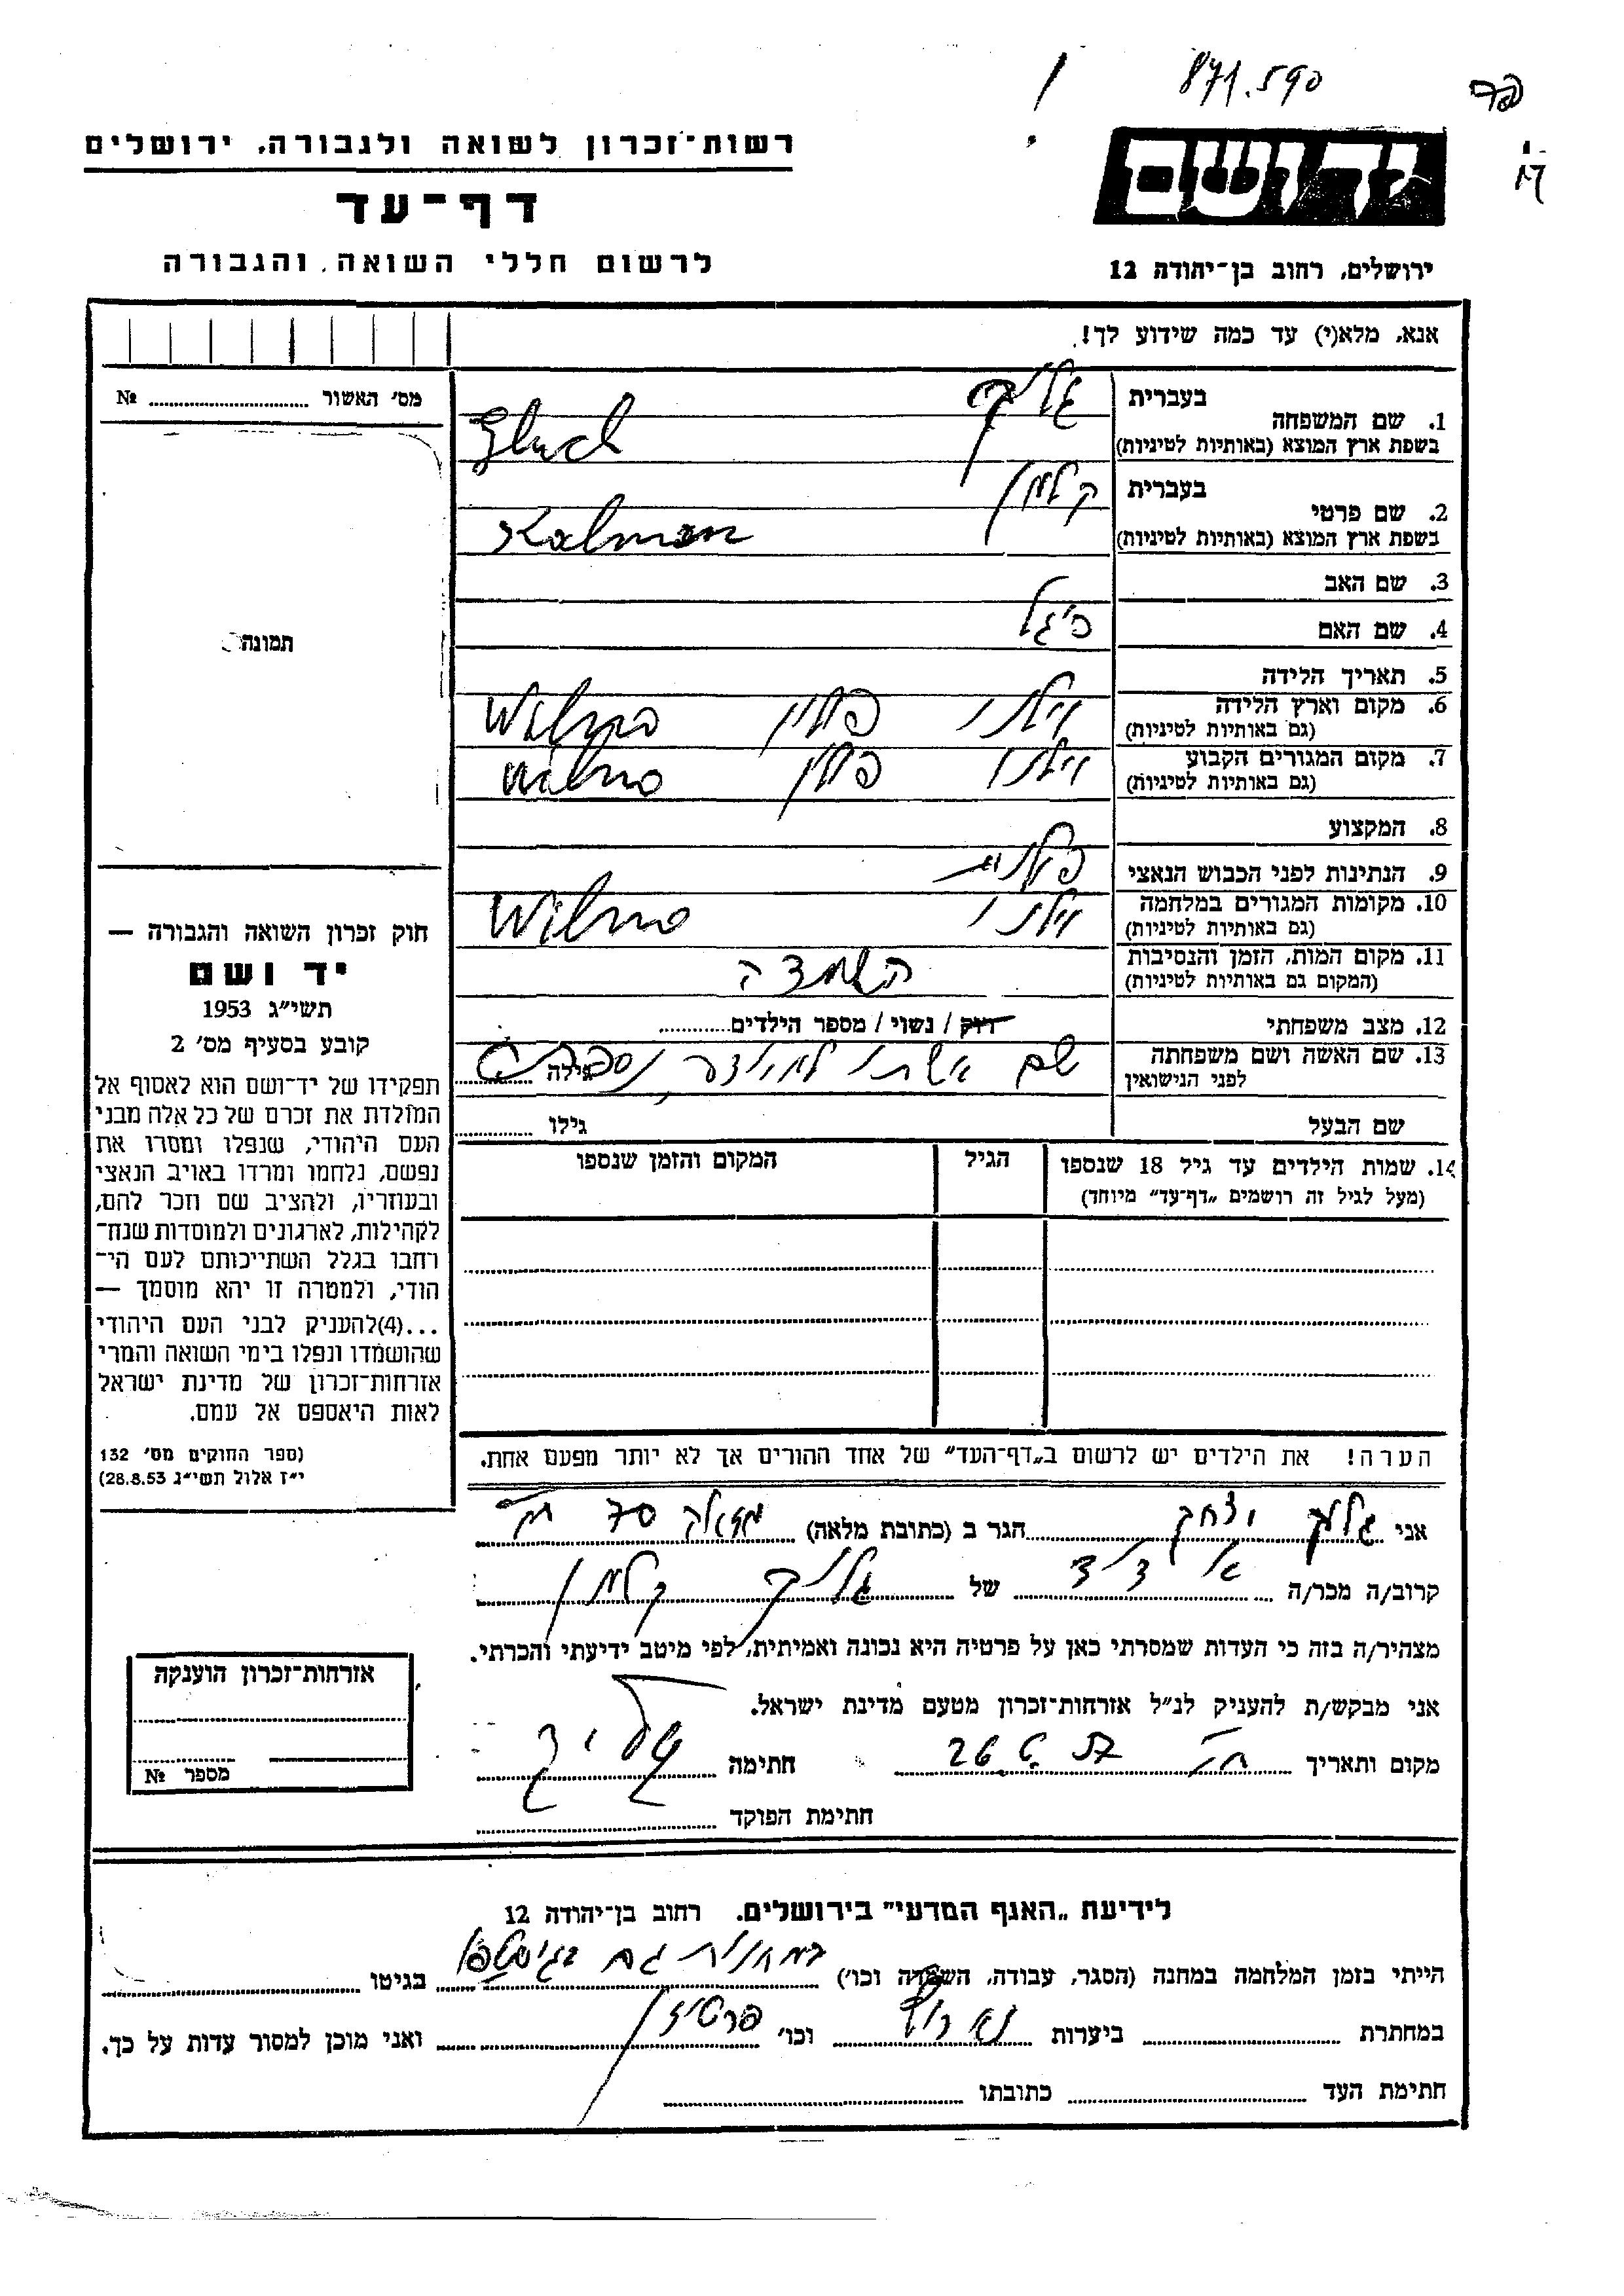 871.590
רשות־זכרון לשואה ולגבורה, ירושלים
יד ושם
דף־עד
לרשום חללי השואה והגבורה
ירושלים, רחוב בן־יהודה 12
אנא, מלא(י) עד כמה שידוע לך!
מס׳ האשור № ........
1. שם המשפחה
בעברית גליק
בשפת ארץ המוצא (באותיות לטיניות) Gluck
2. שם פרטי
בעברית קלמן
בשפת ארץ המוצא (באותיות לטיניות) Kalman
3. שם האב
4. שם האם פיגל
תמונה
5. תאריך הלידה
6. מקום וארץ הלידה (גם באותיות לטיניות) וילנו פולין Wilno
7. מקום המגורים הקבוע (גם באותיות לטיניות) וילנו פולין Wilno
8. המקצוע
9. הנתינות לפני הכבוש הנאצי פולנית
10. מקומות המגורים במלחמה (גם באותיות לטיניות) וילנו Wilno
11. מקום המות, הזמן והנסיבות (המקום גם באותיות לטיניות) השמדה
12. מצב משפחתי רווק / נשוי / מספר הילדים........
13. שם האשה ושם משפחתה לפני הנישואין שם אשתו גילה
שם הבעל גילו ........
14. שמות הילדים עד גיל 18 שנספו
(מעל לגיל זה רושמים „דף־עד" מיוחד)
הגיל
המקום והזמן שנספו
חוק זכרון השואה והגבורה —
יד ושם
תשי״ג 1953
קובע בסעיף מס׳ 2
תפקידו של יד־ושם הוא לאסוף אל
המולדת את זכרם של כל אלה מבני
העם היהודי, שנפלו ומסרו את
נפשם, נלחמו ומרדו באויב הנאצי
ובעוזריו, ולהציב שם וזכר להם,
לקהילות, לארגונים ולמוסדות שנח־
רבו בגלל השתייכותם לעם הי־
הודי, ולמטרה זו יהא מוסמך —
...(4)להעניק לבני העם היהודי
שהושמדו ונפלו בימי השואה והמרי
אזרחות־זכרון של מדינת ישראל
לאות היאספם אל עמם.
(ספר החוקים מס׳ 132
י״ז אלול תשי״ג 28.8.53)
הערה! את הילדים יש לרשום ב„דף־העד" של אחד ההורים אך לא יותר מפעם אחת.
אני גליק יצחק הגר ב (כתובת מלאה) 70
קרוב/ה מכר/ה של גליק קלמן
מצהיר/ה בזה כי העדות שמסרתי כאן על פרטיה היא נכונה ואמיתית, לפי מיטב ידיעתי והכרתי.
אני מבקש/ת להעניק לנ״ל אזרחות־זכרון מטעם מדינת ישראל.
מקום ותאריך חתימה
חתימת הפוקד
אזרחות־זכרון הוענקה
מספר №
לידיעת „האגף המדעי" בירושלים, רחוב בן־יהודה 12
הייתי בזמן המלחמה במחנה (הסגר, עבודה, השמדה וכו׳) במחנות גם בגיטו
במחתרת ביערות וכו׳ פרטיזן ואני מוכן למסור עדות על כך.
חתימת העד כתובתו